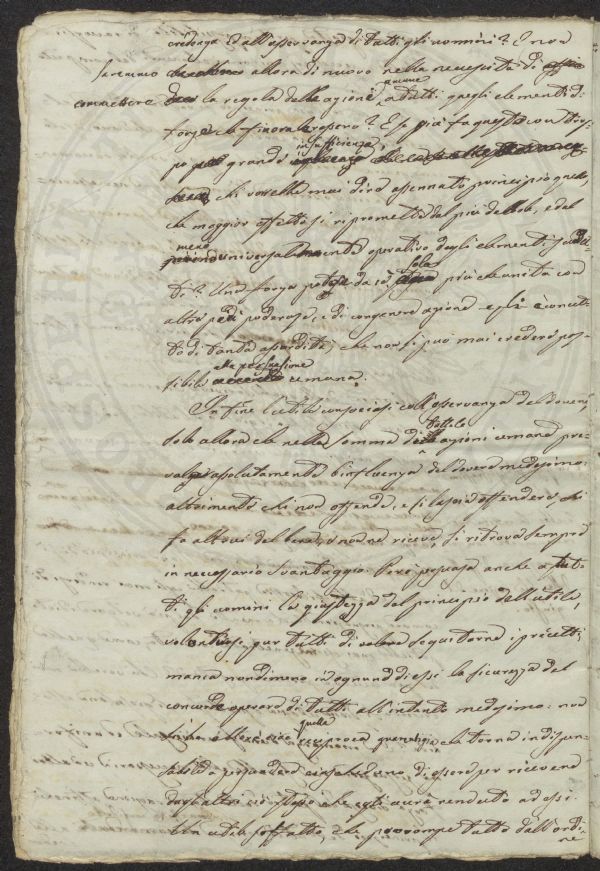 credenza ed all'osservanza di tutti gli uomini? E non
saremmo allora di nuovo nella necessità di
connettere la regola delle azioni umane, a tutti quegli elementi di
forze che finora le resero? E se più fa questo con tempo
più grande insufficienza
chi vorrebbe mai dire assennato principio quello,
che maggior effetto si riprometta dal più debole, e dal
meno universalmente operativo degli elementi
? Una forza potrà da se sola più che unita con
altre più poderose, e di congenere azione egli è concet
to di tanta assurdità, che non si può mai credere pos-
sibile alla persuasione umana.
In fine l'utile consociasi coll'osservanza del dovere,
solo allora che nella somma di tutte le azioni umane pre-
valga assolutamente l'influenza del dovere medesimo:
altrimenti chi non offende, e si lascia offendere, chi
fa altrui del bene, e non ne riceve, si ritrova sempre
in necessario svantaggio. Però persuasa anche a tut-
ti gli uomini la giustezza del principio dell'utile,
volonterosi pur tutti di volere seguitarne i precetti,
manca nondimeno in ognuno di essi la sicurezza del
concorde operare di tutti all'intento medesimo: non
quella reciproca guarentigia che torna indispen-
sabile a persuadere ciascheduno di essere per ricevere
dagli altri ciò stesso che egli avrà renduto ad essi.
Un utile soffatto, che prorompe tutto dall'ordi
ne